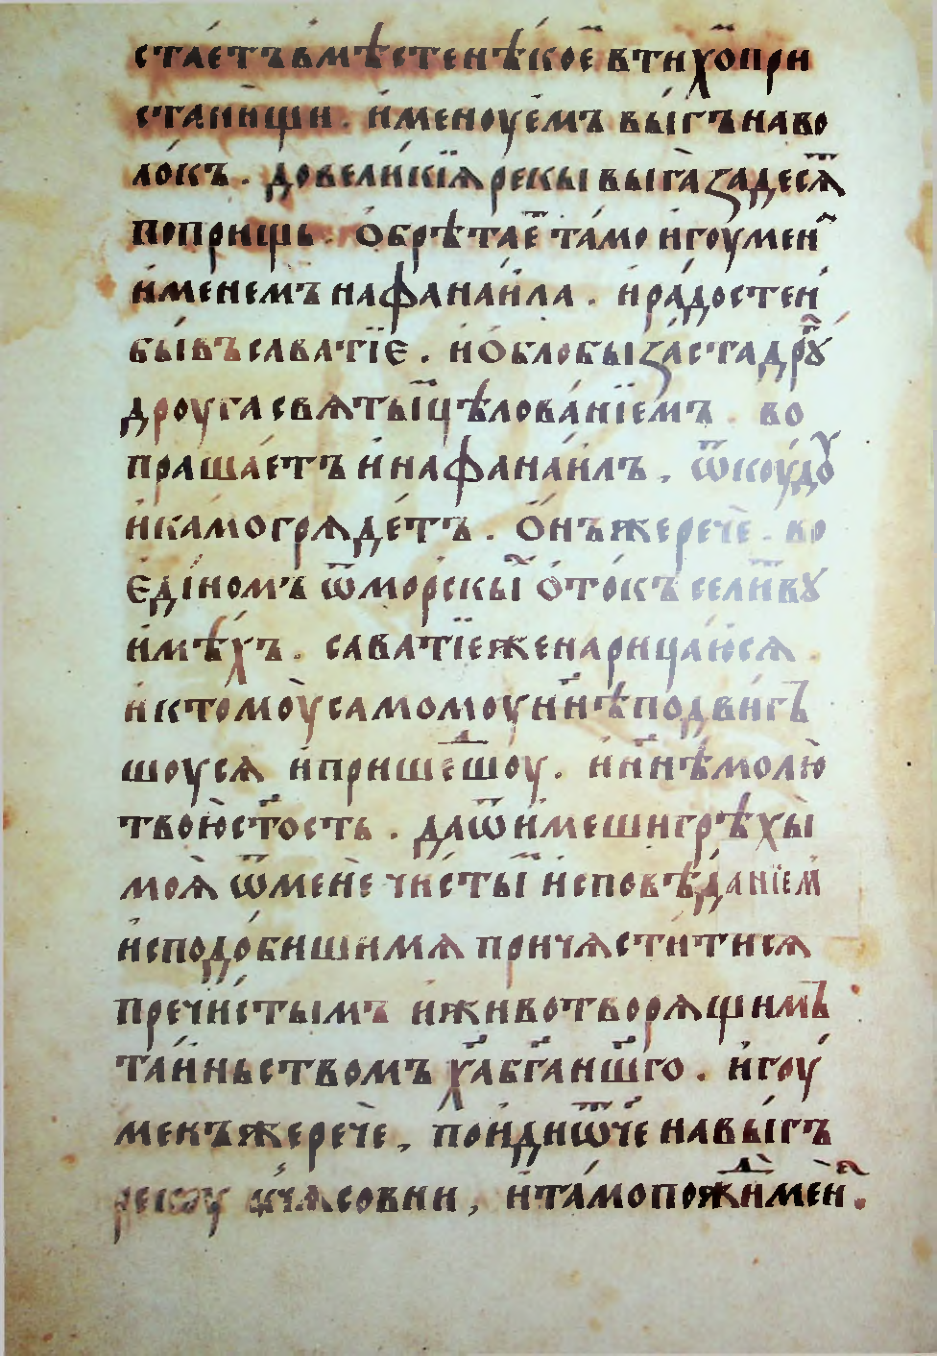 стае́тъ в мѣсте нѣ́кое҇ в тихо҇ при
стани̇щи . и҆менꙋе́мъ вы́гъ наво
ло́къ . до вели́кїѧ рекы вы́га за десѧ҇
поприщь . ѡ҆брѣтае҇ та́мо и҆гоумен҇
и҆менемъ нафана́ила . и҆ ра́достен
бы́въ саватїе . и҆ облобыза́ста дрꙋ҇
дроуга свѧты҇ цѣлова́нїемъ . во
праша́етъ и҆ нафана́илъ . ѿкоу́дꙋ
и҆ ка́мо грѧде́тъ . ѻ҆́нъ же речѐ . во
е҆ді́номъ ѿ мо́рскы҇ ѻ҆то́къ селит҇вꙋ
и҆мѣ́хъ . саватїе же нарица́юсѧ .
и҆ к то́моу̀ самомоу нн҃ѣ подви́гъ
шоусѧ и҆ прише́шоу . и҆ нн҃ѣ молю̀
твою̀ ст҃ость . да ѿи҆меши грѣхы̀
моѧ̀ ѿ менѐ чи́сты҇ и҆сповѣ́данїем
и҆ сподо́биши мѧ причѧсти́тисѧ
пречи́стымъ и҆ животворѧщимъ
та́йньством х҃а бг҃а нш҃го . и҆гоу́
менъ же речѐ , пои́ди ѿч҃е на вы́гъ
рекоу к чѧсовни , и҆ та́мо пожⷣи мене҇ .